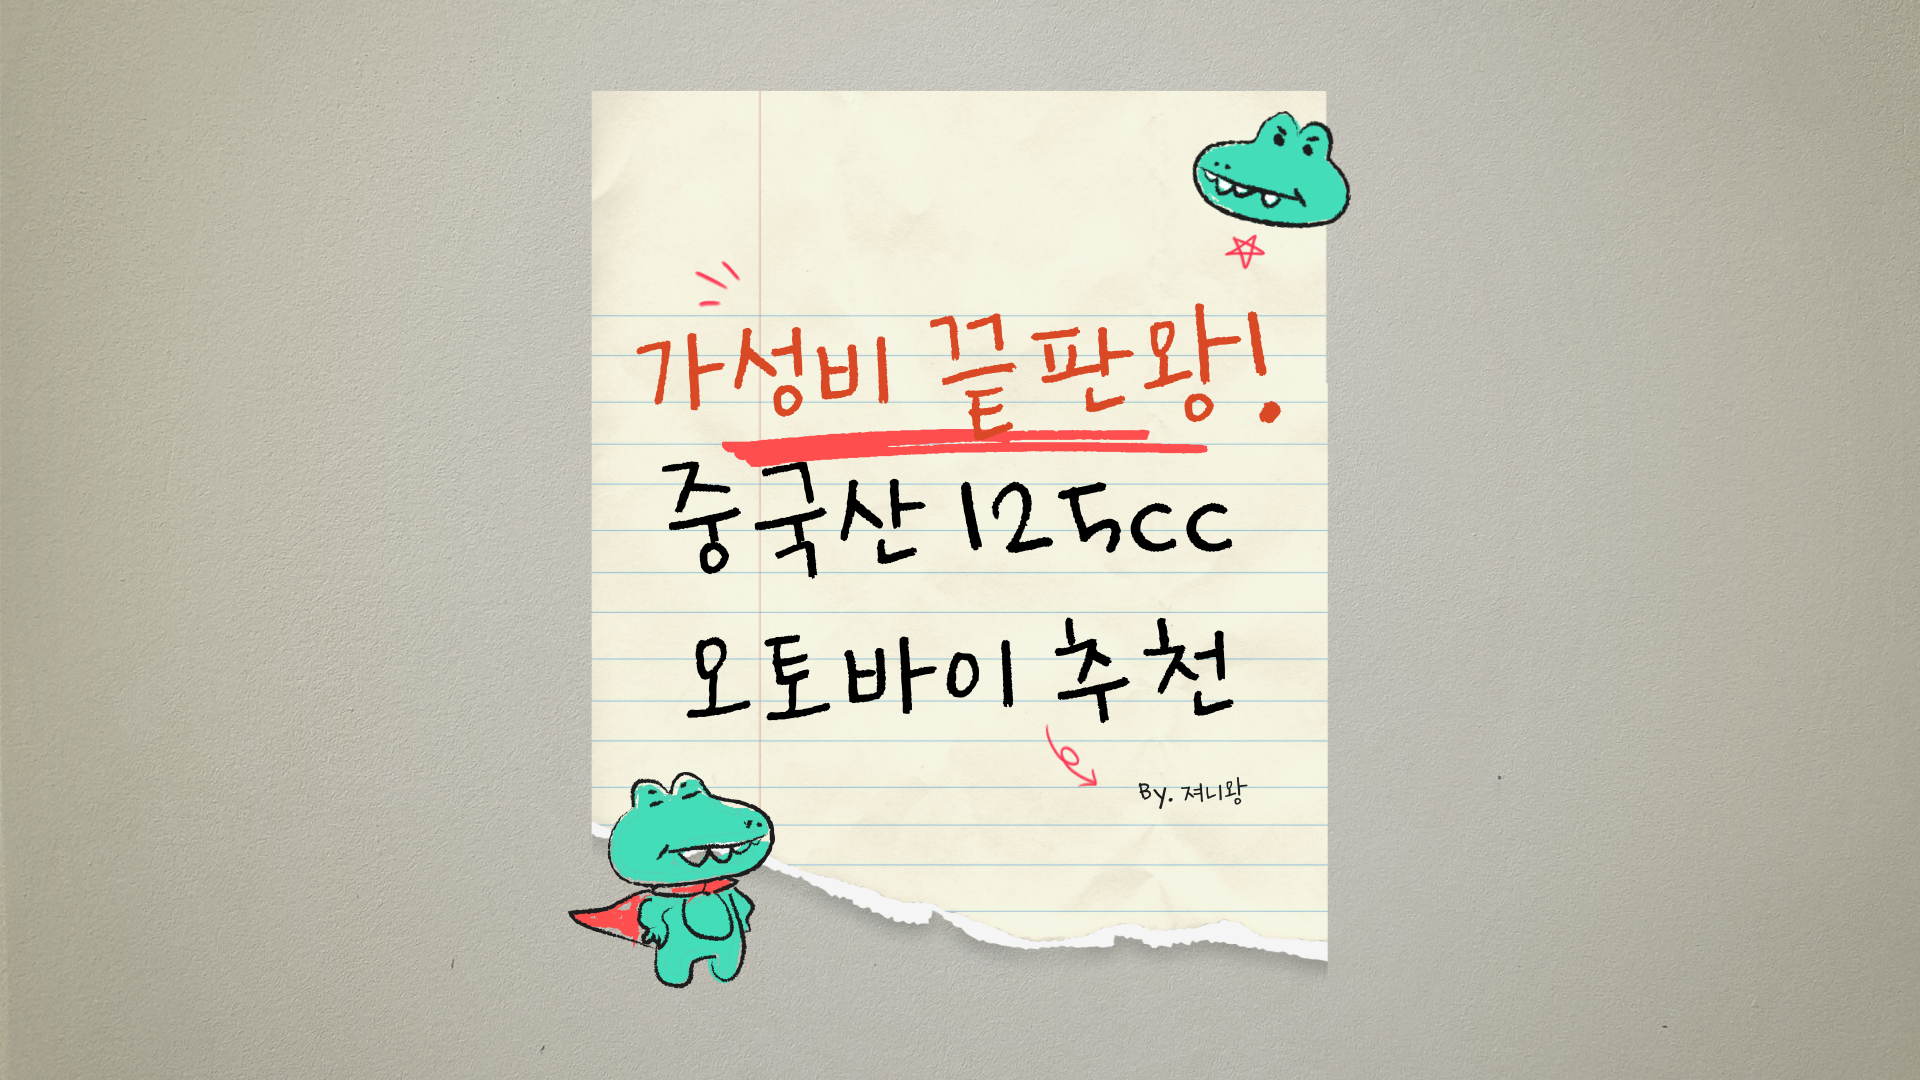 가성비 끝판왕!
중국산 125cc
오토바이 추천
By. 져니왕